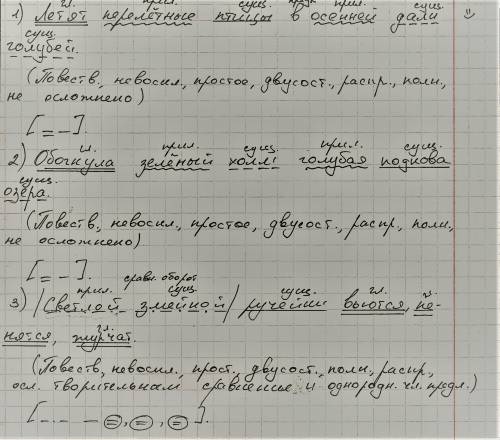 гл. прил. сущ. предл прил. сущ.
1) Летят перелётные птицы в осенней дали
сущ.
голубей.
(Повеств, невоскл., простое, двусост., распр., полн.,
не осложнено)
[= –].
гл. прил. сущ. прил. сущ.
2) Обогнула зелёный холм голубая подкова
сущ.
озера.
(Повеств, невоскл., простое, двусост., распр., полн,
не осложнено)
[= –]. сравн. оборот
прил. сущ. сущ. гл. гл.
3) /Светлой змейкой/ ручейки вьются, пе-
гл.
нятся, журчат.
(Повеств, невоскл., прост., двусост., полн., распр.,
осл. творительным сравнения и однородн. чл. предл.)
[_._ – =, =, =].